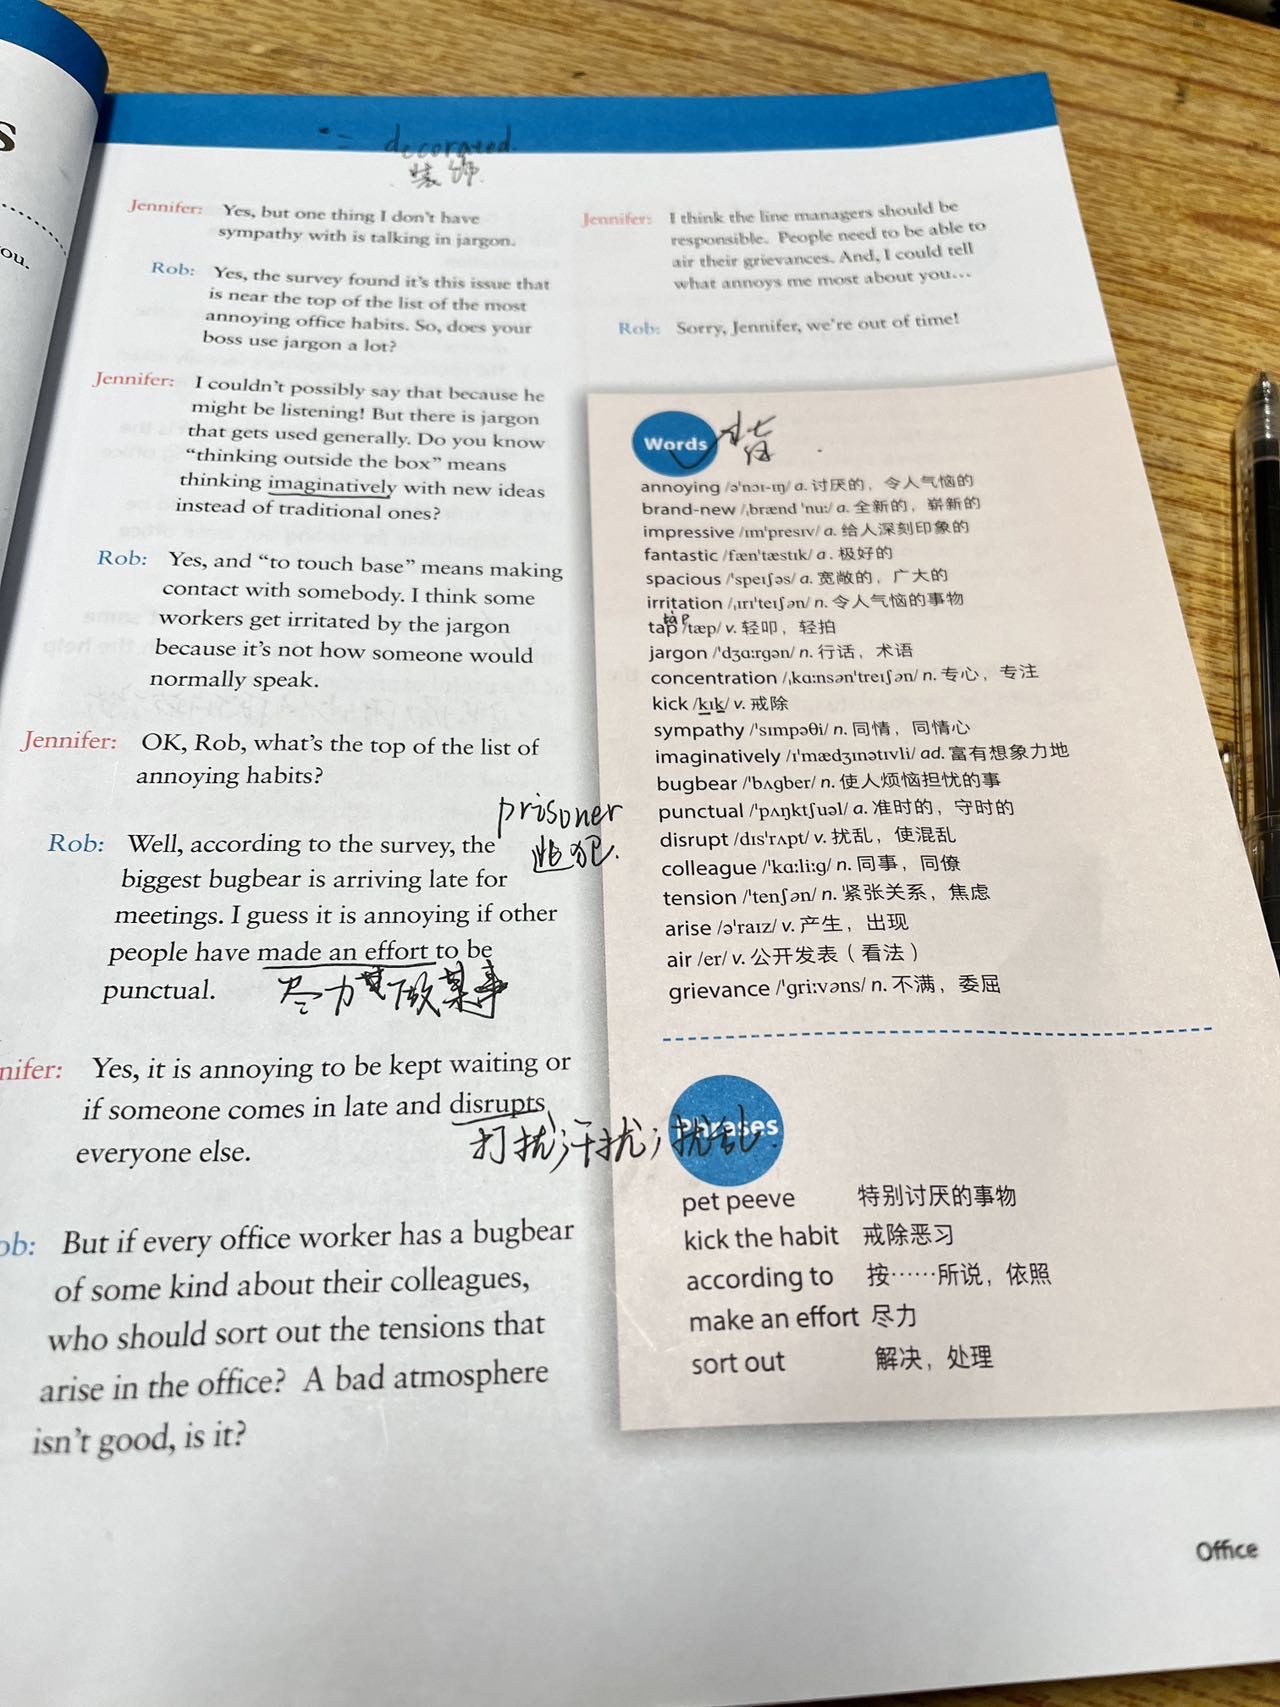 s
ou.
= decorated.
装饰
Jennifer: Yes, but one thing I don't have
sympathy with is talking in jargon.
Rob: Yes, the survey found it's this issue that
is near the top of the list of the most
annoying office habits. So, does your
boss use jargon a lot?
Jennifer: I couldn't possibly say that because he
might be listening! But there is jargon
that gets used generally. Do you know
“thinking outside the box” means
thinking imaginatively with new ideas
instead of traditional ones?
Rob: Yes, and “to touch base” means making
contact with somebody. I think some
workers get irritated by the jargon
because it's not how someone would
normally speak.
Jennifer: OK, Rob, what's the top of the list of
annoying habits?
prisoner
逃犯.
Rob: Well, according to the survey, the
biggest bugbear is arriving late for
meetings. I guess it is annoying if other
people have made an effort to be
punctual.
尽力去做某事
nifer: Yes, it is annoying to be kept waiting or
if someone comes in late and disrupts
everyone else.
打扰;干扰;扰乱.
ob: But if every office worker has a bugbear
of some kind about their colleagues,
who should sort out the tensions that
arise in the office? A bad atmosphere
isn't good, is it?
Jennifer: I think the line managers should be
responsible. People need to be able to
air their grievances. And, I could tell
what annoys me most about you…
Rob: Sorry, Jennifer, we're out of time!
Words
背
annoying /ə'nɔɪ-ɪŋ/ a. 讨厌的，令人气恼的
brand-new /ˌbrænd 'nuː/ a. 全新的，崭新的
impressive /ɪm'presɪv/ a. 给人深刻印象的
fantastic /fæn'tæstɪk/ a. 极好的
spacious /'speɪʃəs/ a. 宽敞的，广大的
irritation /ˌɪrɪ'teɪʃən/ n. 令人气恼的事物
tap /tæp/ v. 轻叩，轻拍
jargon /'dʒɑːrgən/ n. 行话，术语
concentration /ˌkɑːnsən'treɪʃən/ n. 专心，专注
kick /kɪk/ v. 戒除
sympathy /'sɪmpəθi/ n. 同情，同情心
imaginatively /ɪ'mædʒɪnətɪvli/ ad. 富有想象力地
bugbear /'bʌgber/ n. 使人烦恼担忧的事
punctual /'pʌŋktʃuəl/ a. 准时的，守时的
disrupt /dɪs'rʌpt/ v. 扰乱，使混乱
colleague /'kɑːliːg/ n. 同事，同僚
tension /'tenʃən/ n. 紧张关系，焦虑
arise /ə'raɪz/ v. 产生，出现
air /er/ v. 公开发表（看法）
grievance /'griːvəns/ n. 不满，委屈
Phrases
pet peeve 特别讨厌的事物
kick the habit 戒除恶习
according to 按……所说，依照
make an effort 尽力
sort out 解决，处理
Office